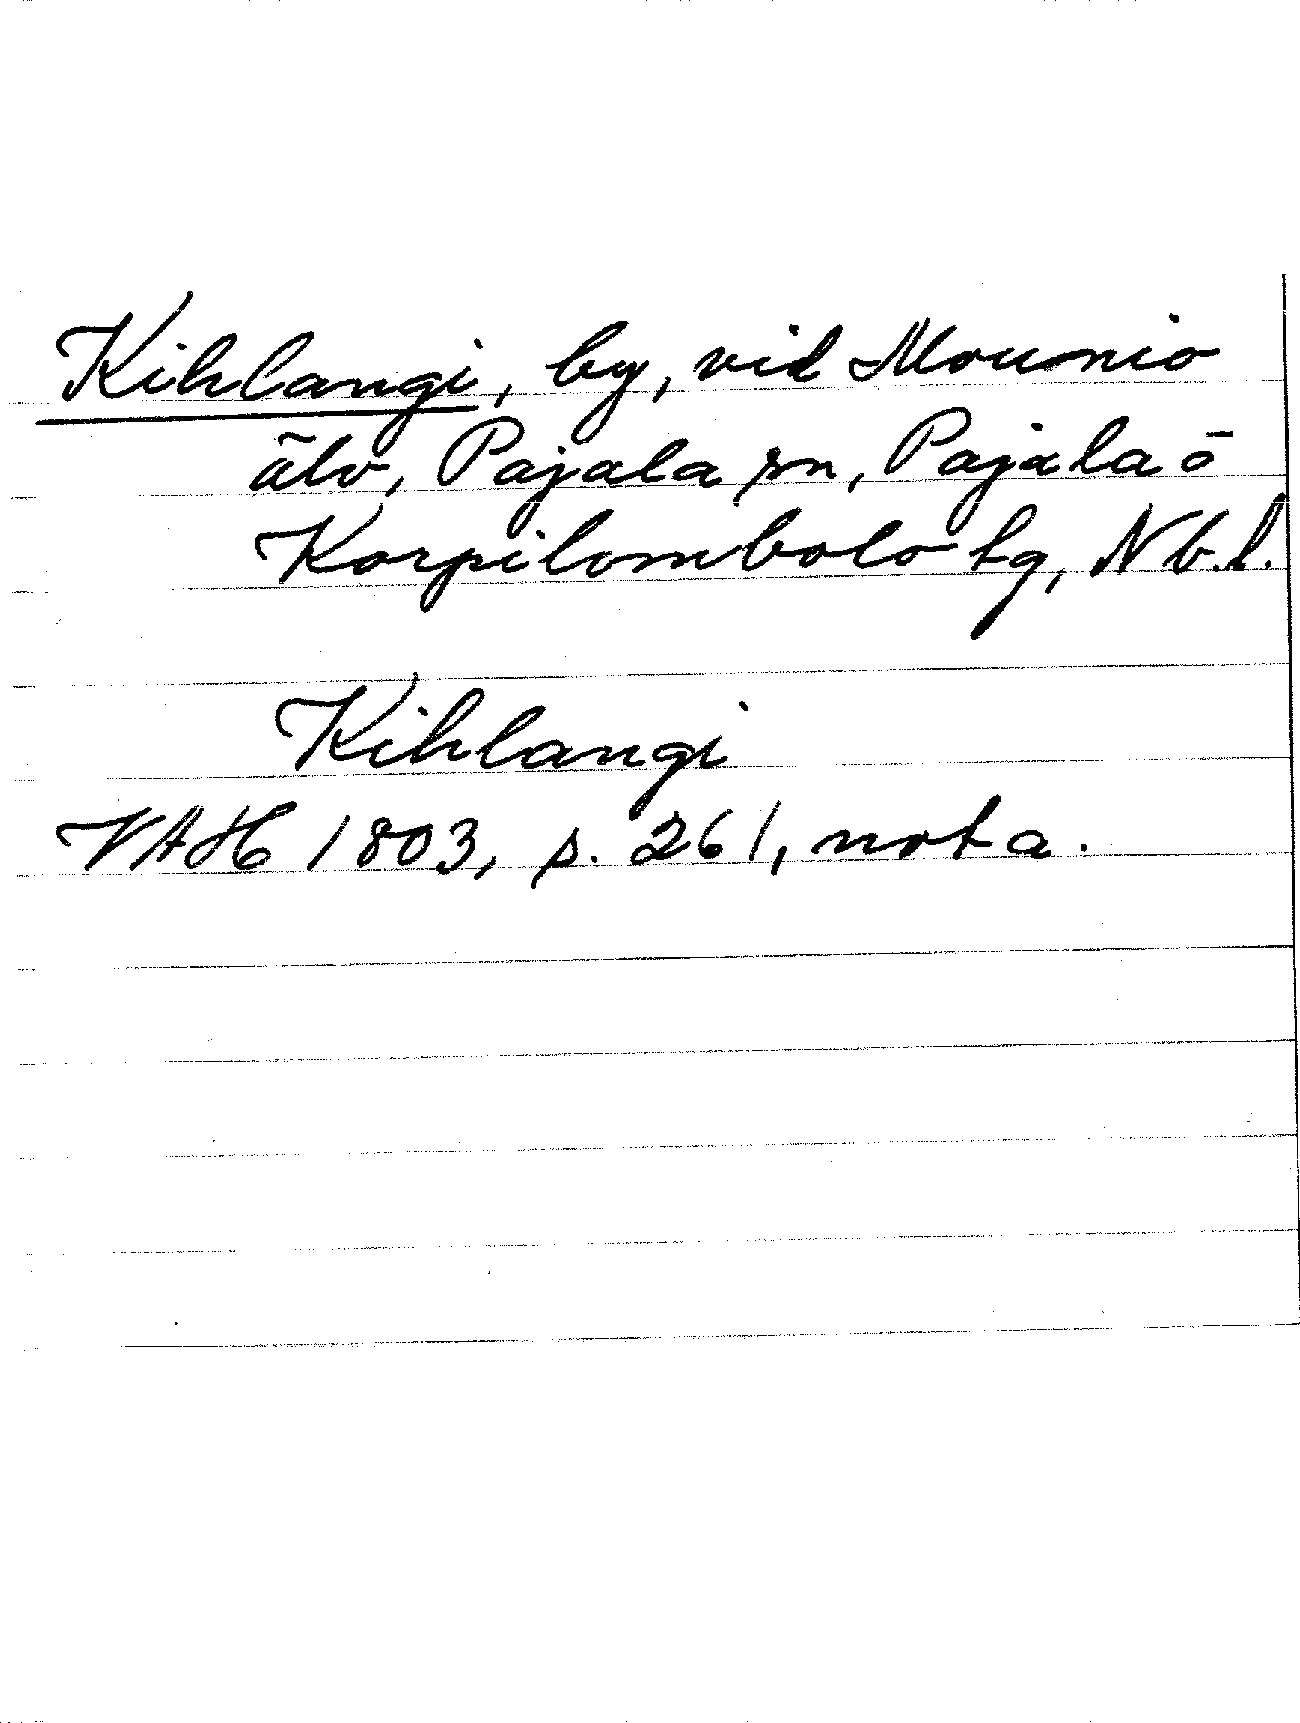 Kihlangi, by, vid Mounio
älv, Pajala sn, Pajala o
Korpilombolo tg, Nb.l.
Kihlangi
VAH 1803, s. 261, nota.